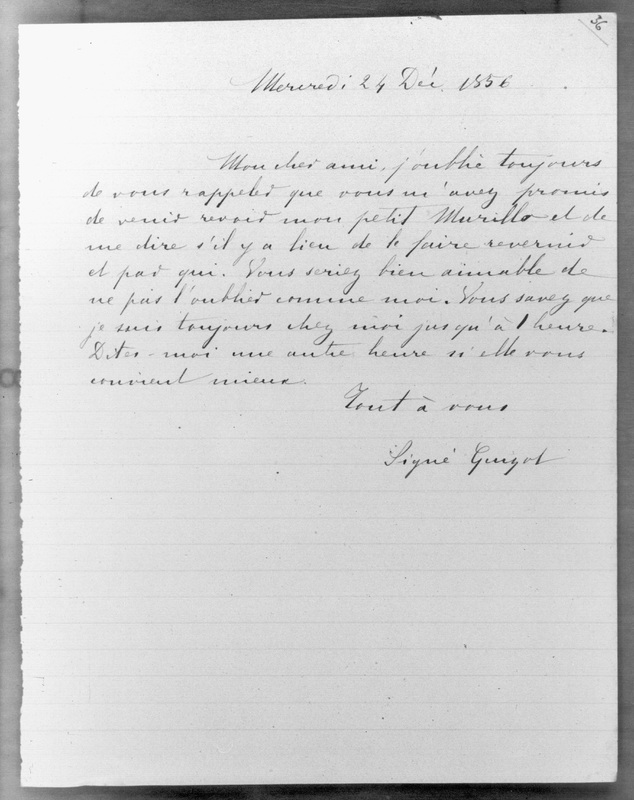 36
Mercredi 24 Déc. 1856
Mon cher ami, j'oublie toujours
de vous rappeler que vous m'avez promis
de venir revoir mon petit Murillo et de
me dire s'il y a lieu de le faire revernir
et par qui. Vous seriez bien aimable de
ne pas l'oublier comme moi. Vous savez que
je suis toujours chez moi jusqu'à 1 heure.
Dites-moi une autre heure si elle vous
convient mieux.
Tout à vous
Signé Guizot